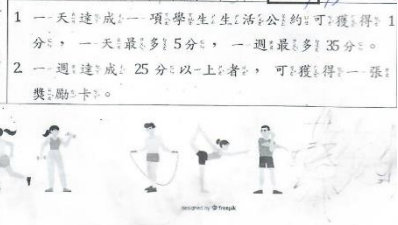 1. 一天達成一項學生生活公約可獲得 1
分，一天最多 5 分，一週最多 35 分。
2. 一週達成 25 分以上者，可獲得一張
獎勵卡。
designed by freepik